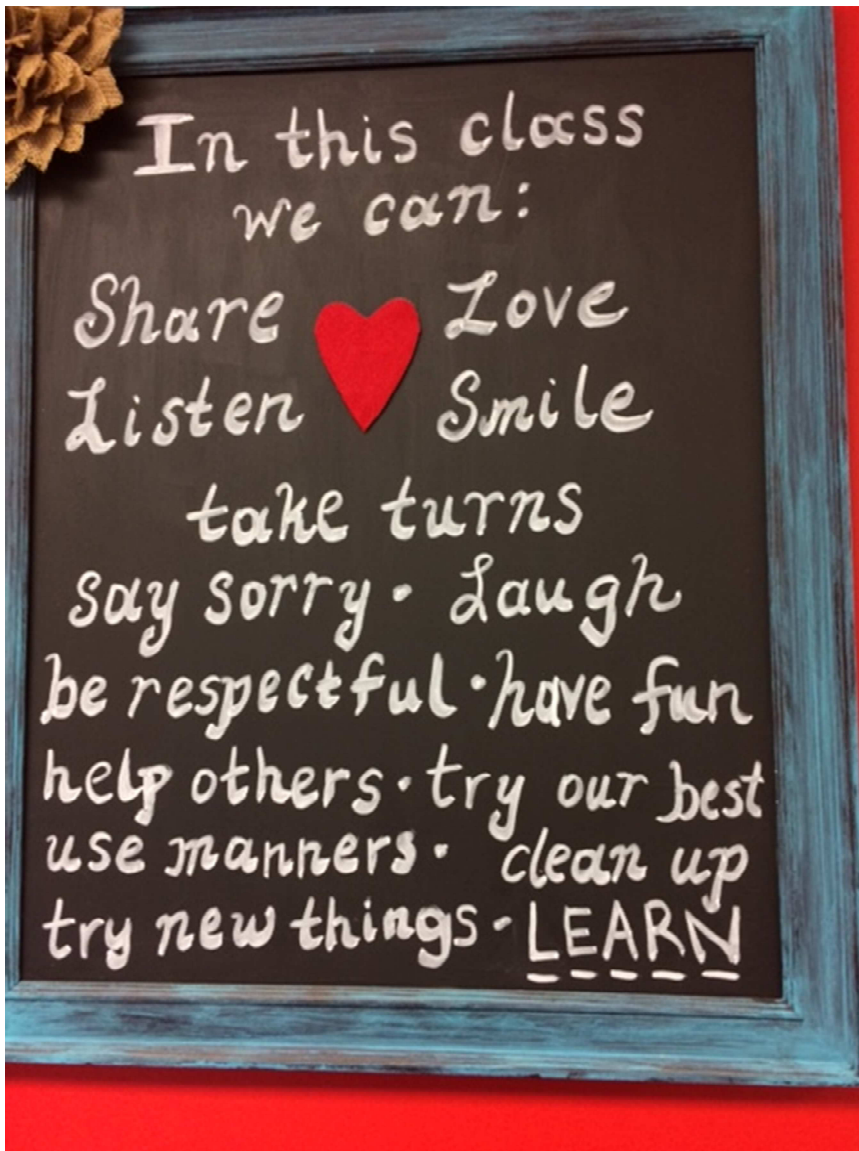 In this class
we can:
Share Love
Listen Smile
take turns
say sorry · Laugh
be respectful · have fun
help others · try our best
use manners · clean up
try new things · LEARN